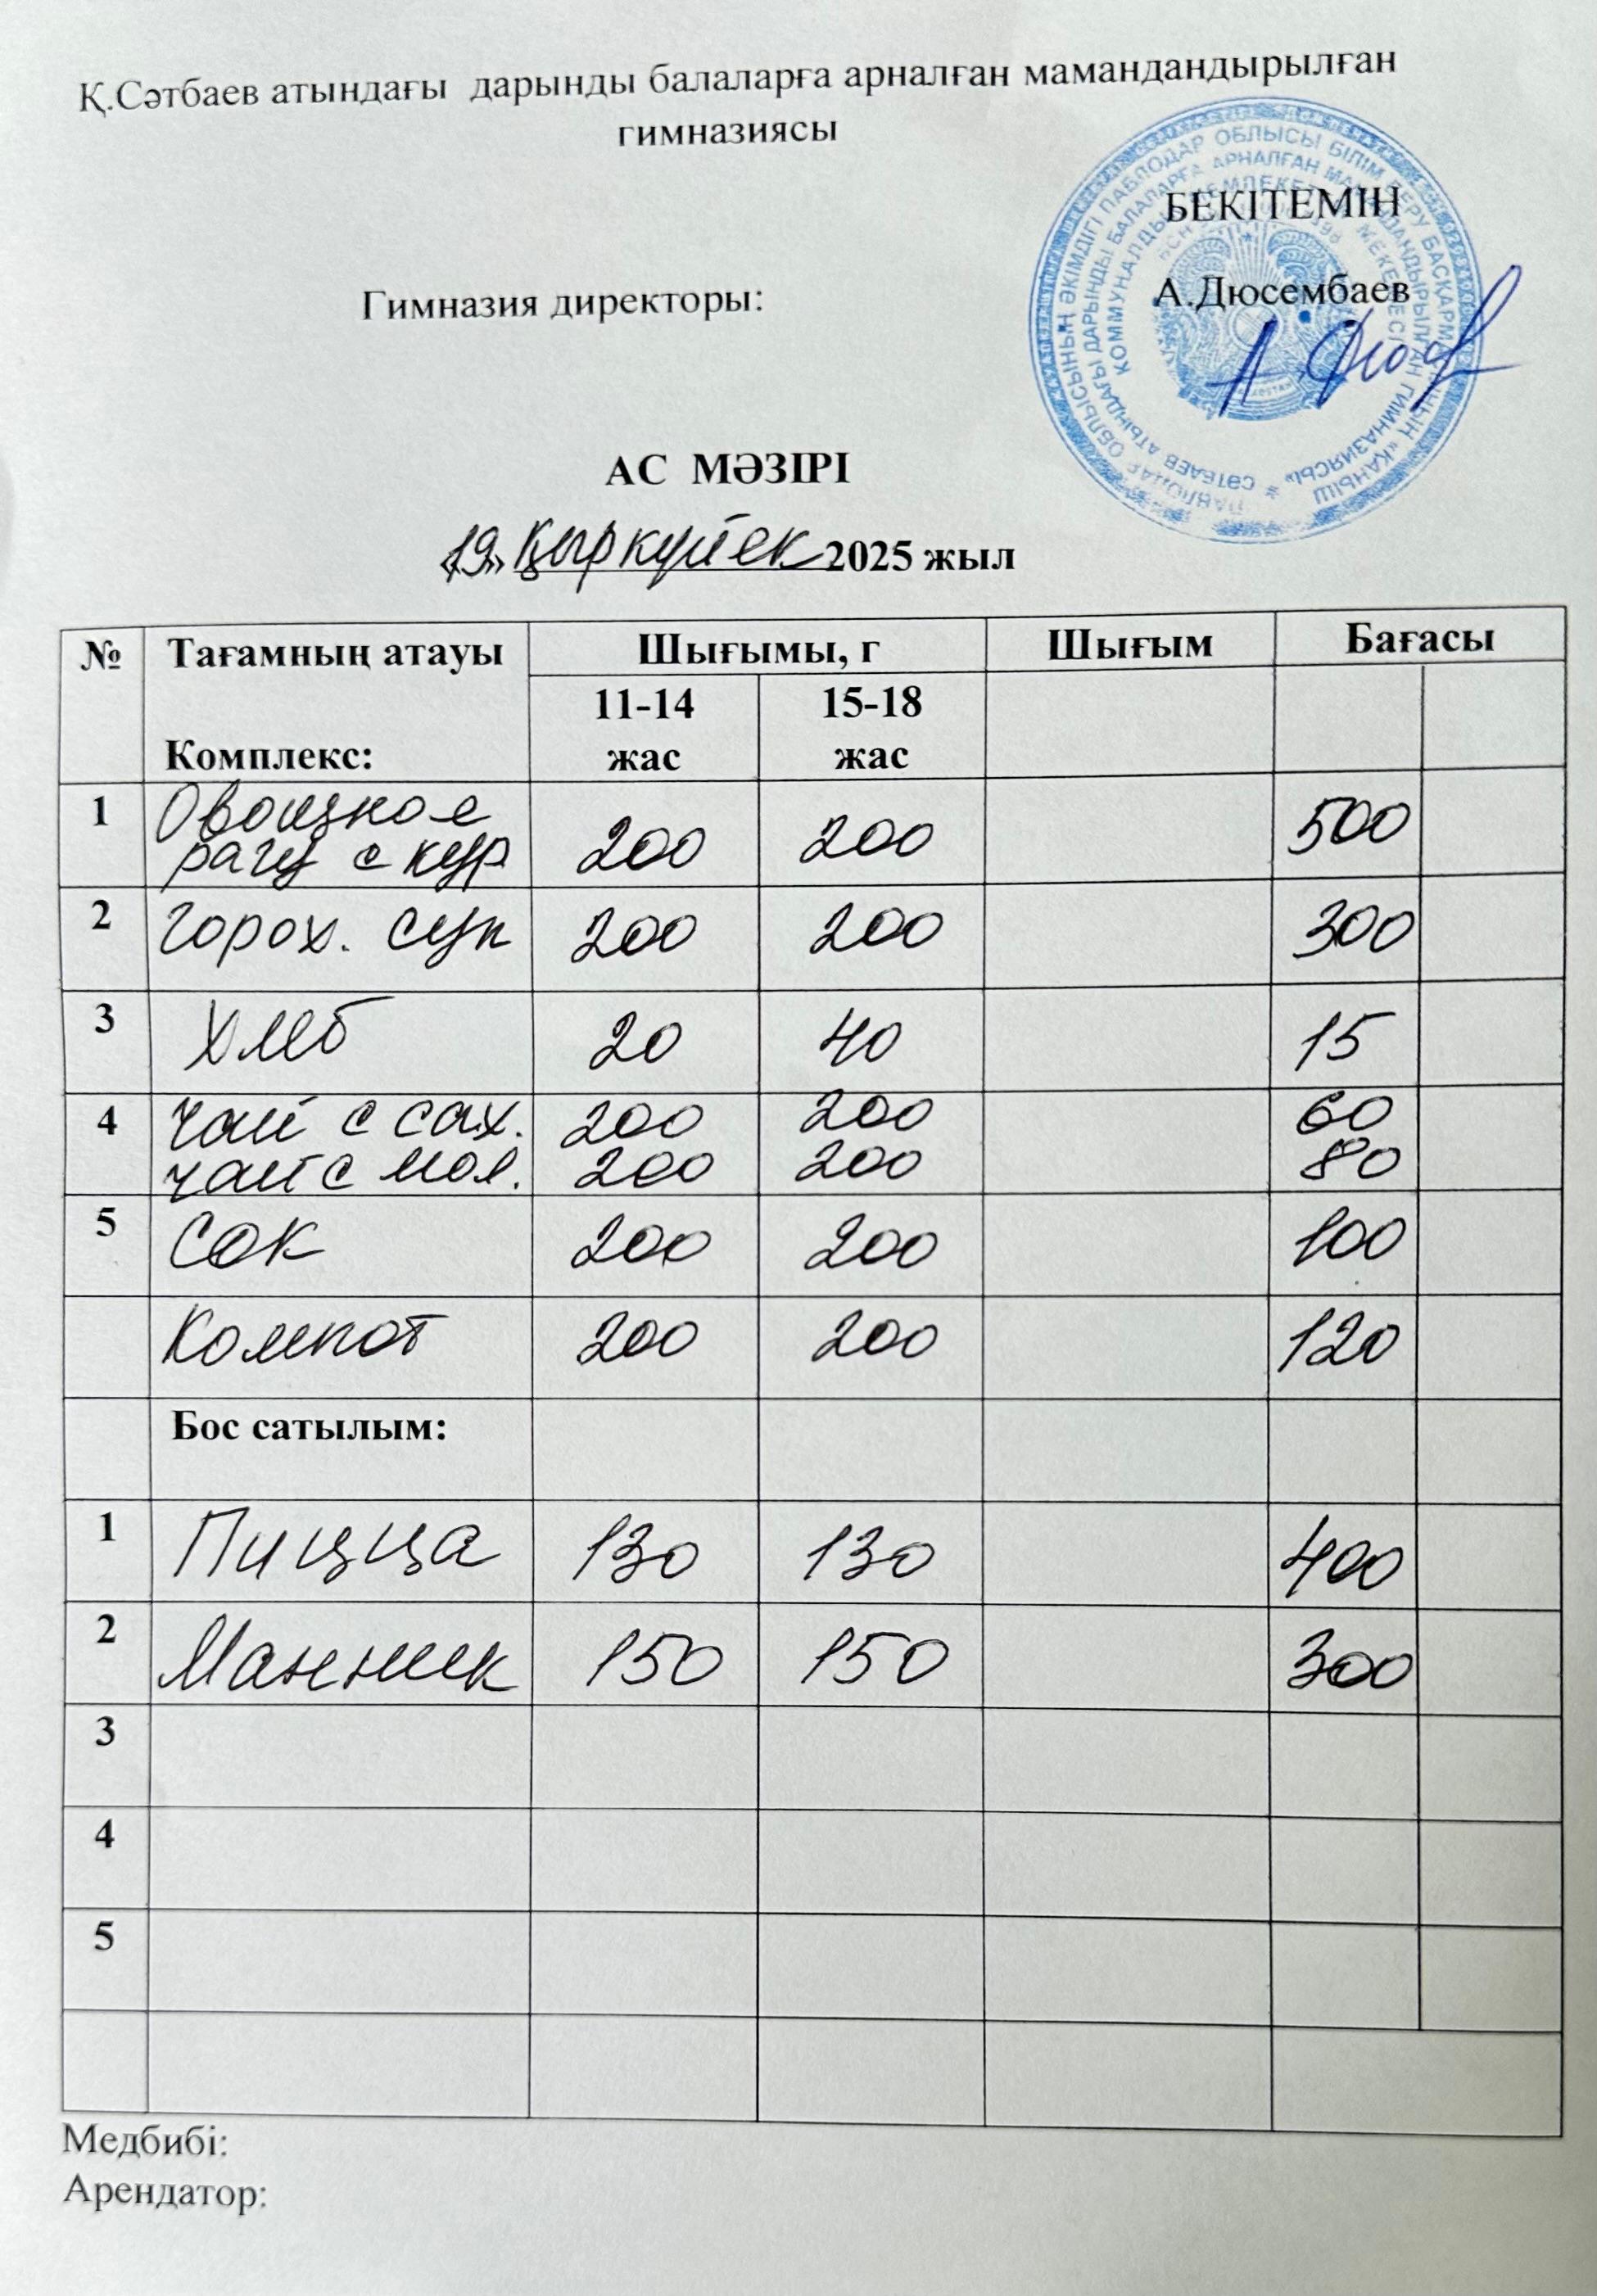 Қ.Сәтбаев атындағы дарынды балаларға арналған мамандандырылған
гимназиясы
БЕКІТЕМІН
Гимназия директоры: А.Дюсембаев
АС МӘЗІРІ
«19» Қыркүйек 2025 жыл
№ Тағамның атауы Шығымы, г Шығым Бағасы
Комплекс: 11-14 жас 15-18 жас
1 Овощное рагу с кур 200 200 500
2 Горох. суп 200 200 300
3 Хлеб 20 40 15
4 Чай с сах. 200 200 60
чай с мол. 200 200 80
5 Сок 200 200 100
Компот 200 200 120
Бос сатылым:
1 Пицца 130 130 400
2 Манник 150 150 300
3
4
5
Медбибі:
Арендатор: